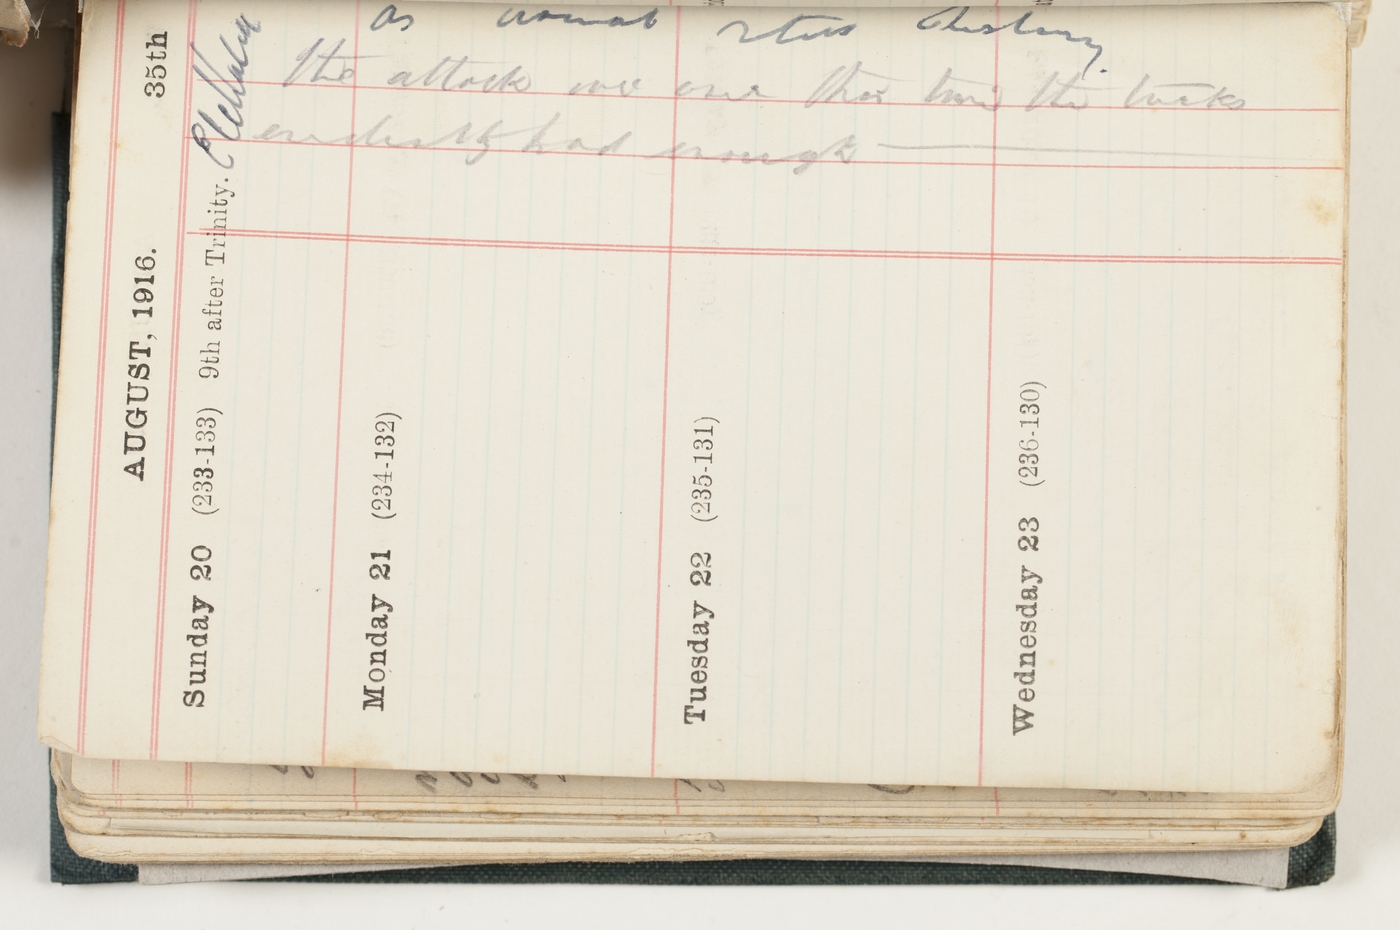 as normal
the attack was over this time the turks
evidently had enough
AUGUST, 1916. 35th
Sunday 20 (233-133) 9th after Trinity.
Monday 21 (234-132)
Tuesday 22 (235-131)
Wednesday 23 (236-130)